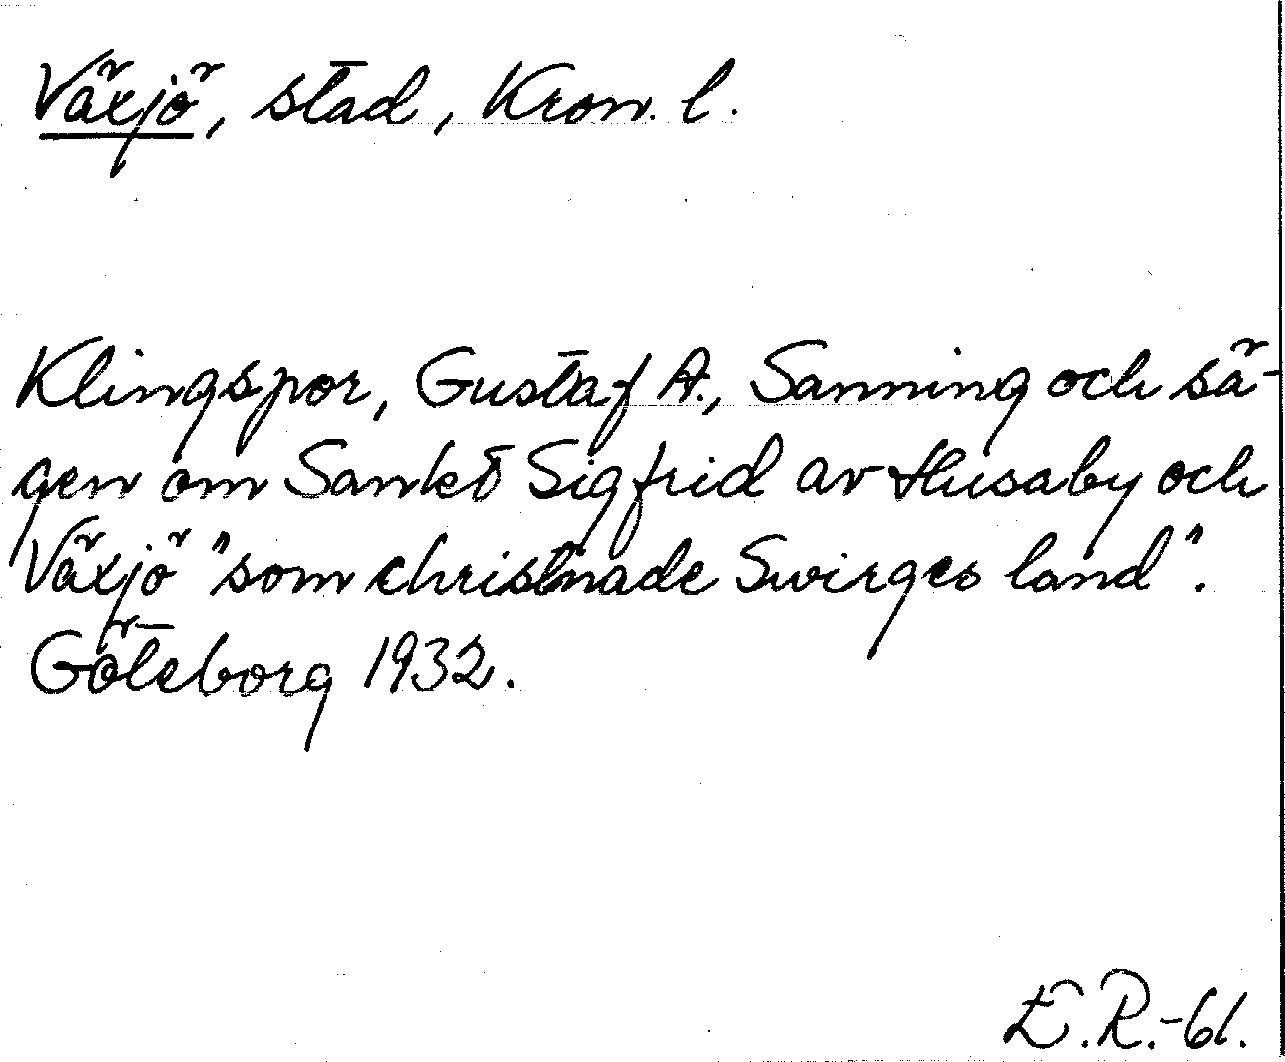 Växjö, stad, Kron. l.
Klingspor, Gustaf A., Sanning och sä-
gen om Sankt Sigfrid av Husaby och
Växjö "som christnade Swirges land".
Göteborg 1932.
E.R.-61.